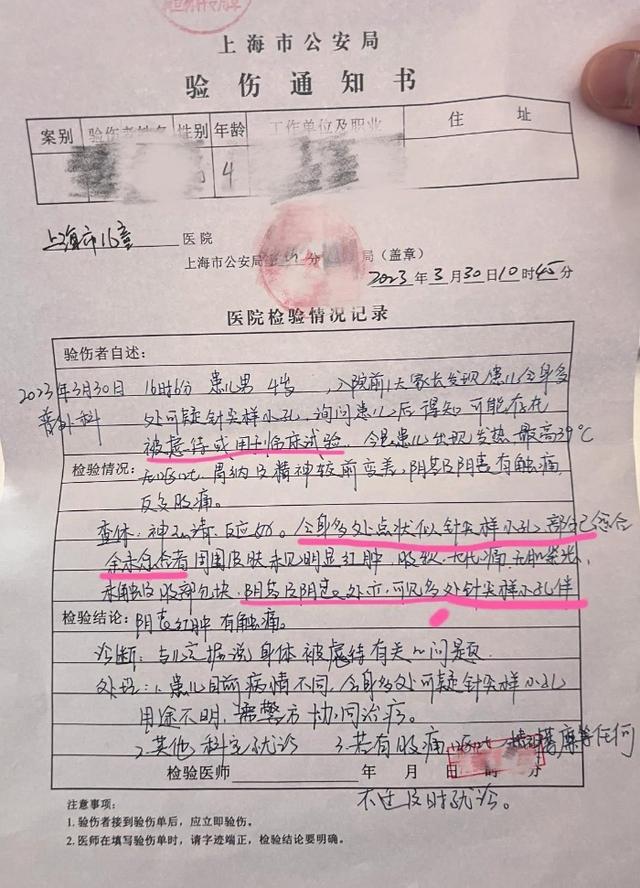 上海市公安局
验伤通知书
案别 验伤者姓名 性别 年龄 工作单位及职业 住址
4
上海市儿童 医院
上海市公安局 分 局（盖章）
2023年3月30日10时45分
医院检验情况记录
验伤者自述：
2023年3月30日 16时6分 患儿男 4岁 ，入院前1天家长发现患儿全身多
普外科 处可疑针尖样小孔，询问患儿后得知可能存在
被虐待或用于临床试验，今患儿出现发热，最高39℃
检验情况：无呕吐，胃纳及精神较前变差，阴茎及阴囊有触痛，
反复腹痛。
查体：神志清，反应好。全身多处点状似针尖样小孔，部分已愈合
余未愈合者周围皮肤未见明显红肿，腹软，无压痛，无肌紧张，
未触及腹部包块，阴茎及阴囊处亦可见多处针尖样小孔伴
检验结论：阴茎红肿有触痛。
诊断：与儿童据说身体被虐待有关的问题
处理：1.患儿目前病情不同，全身多处可疑针尖样小孔
用途不明，需警方协同治疗。
2.其他科室就诊 3.若有腹痛 呕吐 等任何
检验医师 年 月 日 时 分
不适及时就诊。
注意事项：
1. 验伤者接到验伤单后，应立即验伤。
2. 医师在填写验伤单时，请字迹端正，检验结论要明确。